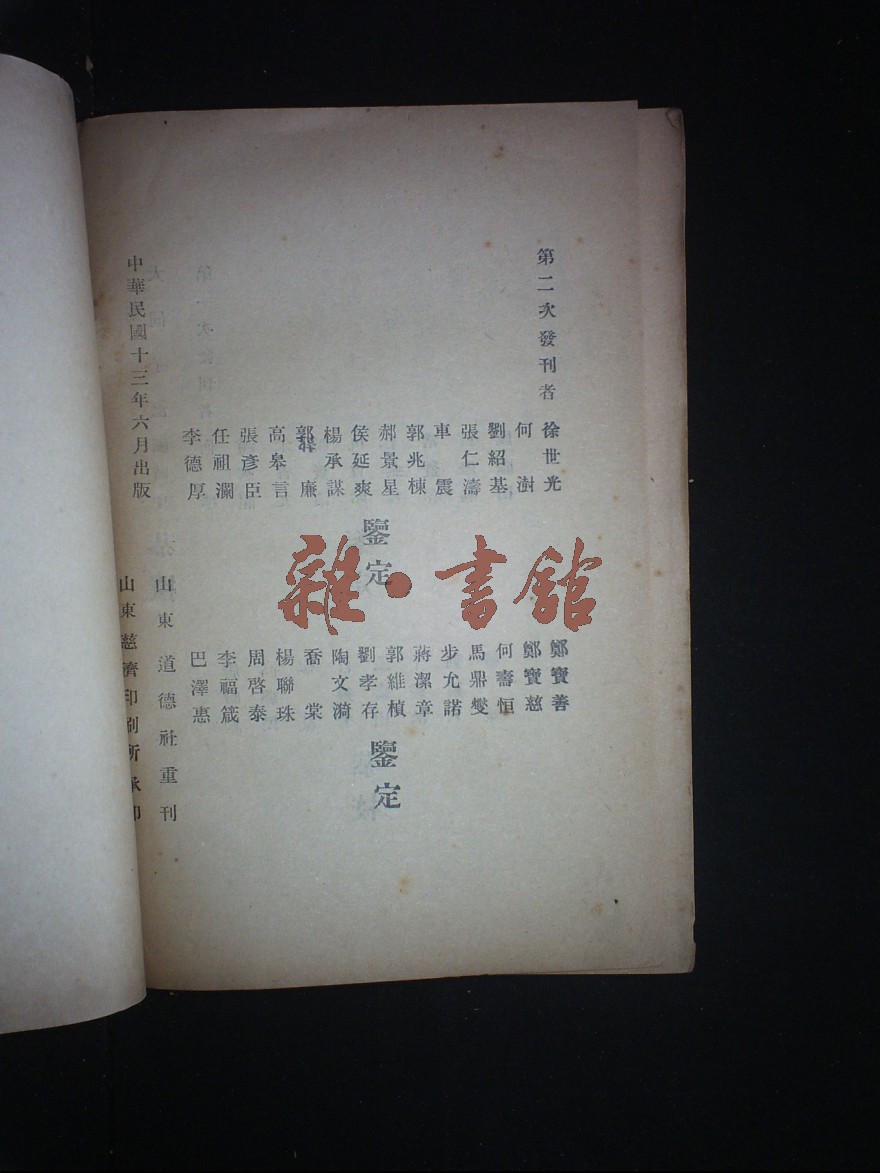 第二次發刊者
徐世光
何樹
劉紹基
張仁濤
車震
郭兆棟
郝景星
侯延爽
楊承謀
郭廉
高皋言
張彥臣
任祖瀾
李德厚
鑒定
鄭寶善
鄭寶慈
何壽恒
馬鼎燮
步允諾
蔣潔章
郭維楨
劉孝存
陶文漪
喬棠
楊聯珠
周啓泰
李福箴
巴澤惠
鑒定
山東道德社重刊
中華民國十三年六月出版
山東慈濟印刷所承印
雜·書館